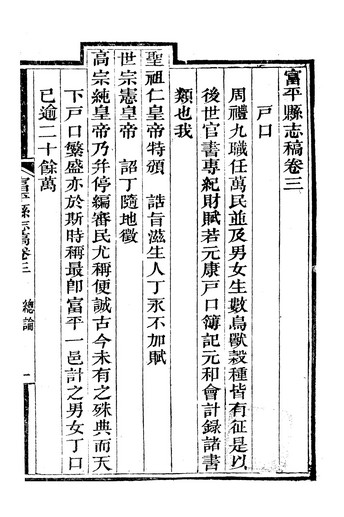 富平縣志稿卷三
戶口
周禮九職任萬民並及男女生數鳥獸穀種皆有征是以
後世官書專紀財賦若元康戶口簿記元和會計錄諸書
類也我
聖祖仁皇帝特頒 誥旨滋生人丁永不加賦
世宗憲皇帝 詔丁隨地徵
高宗純皇帝乃幷停編審民尤稱便誠古今未有之殊典而天
下戶口繁盛亦於斯時稱最卽富平一邑計之男女丁口
已逾二十餘萬
富平縣志稿卷三 總論 一